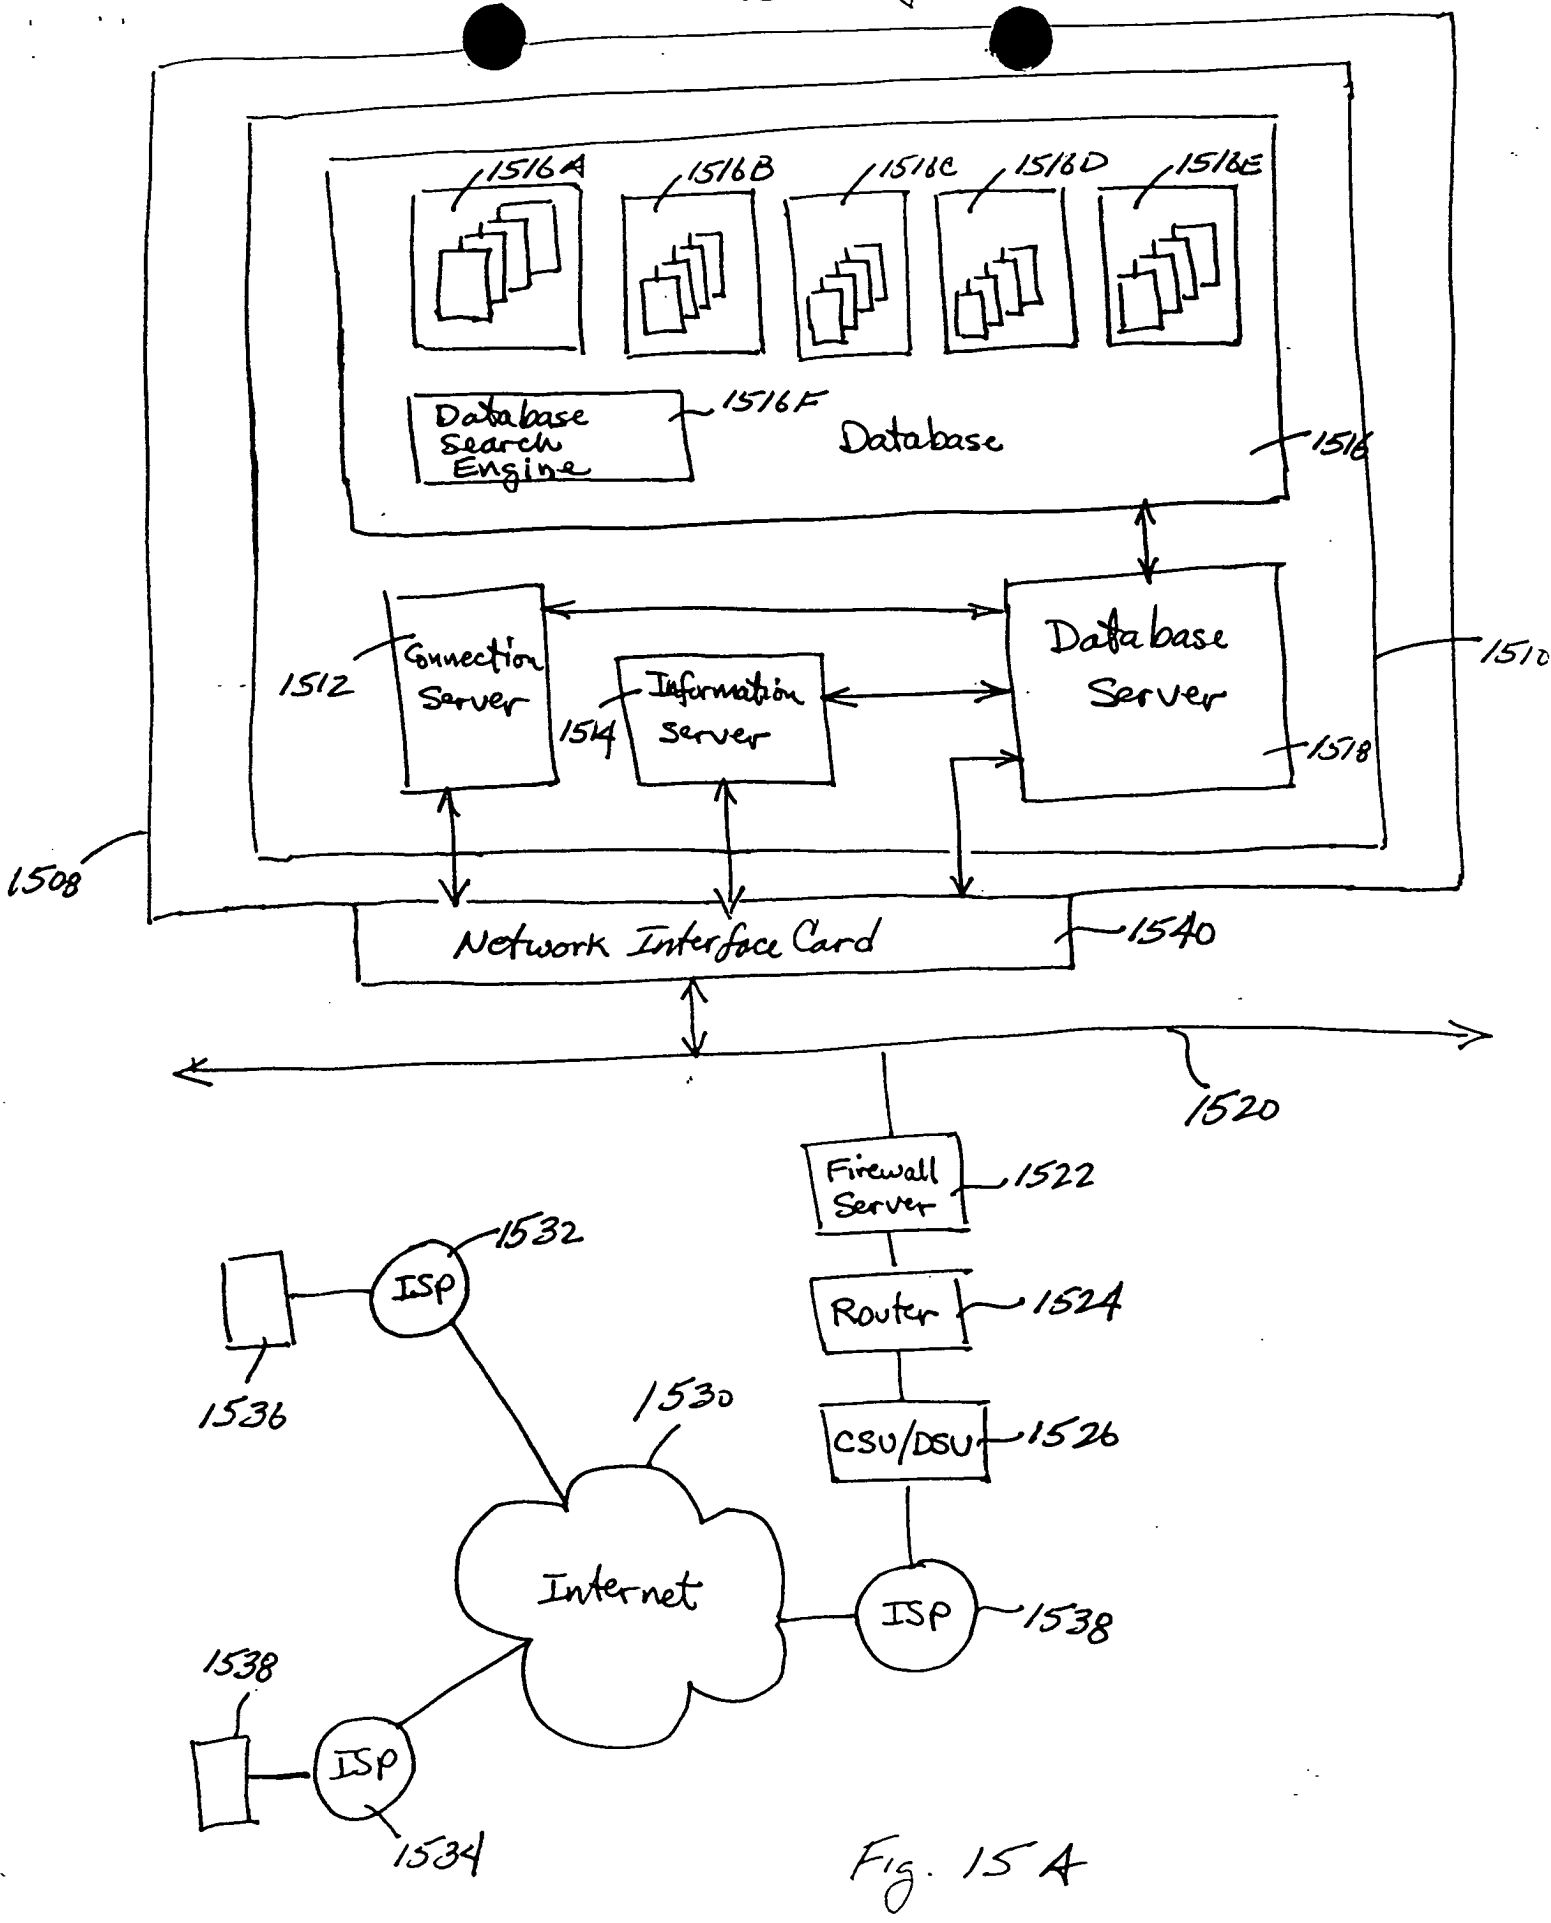 1516A
1516B
1516C
1516D
1516E
Database
Search
Engine
1516F
Database
1516
Connection
Server
1512
Information
Server
1514
Database
Server
1518
1510
1508
Network Interface Card
1540
1520
Firewall
Server
1522
ISP
1532
1536
Router
1524
1530
CSU/DSU
1526
Internet
ISP
1538
1538
ISP
1534
Fig. 15A